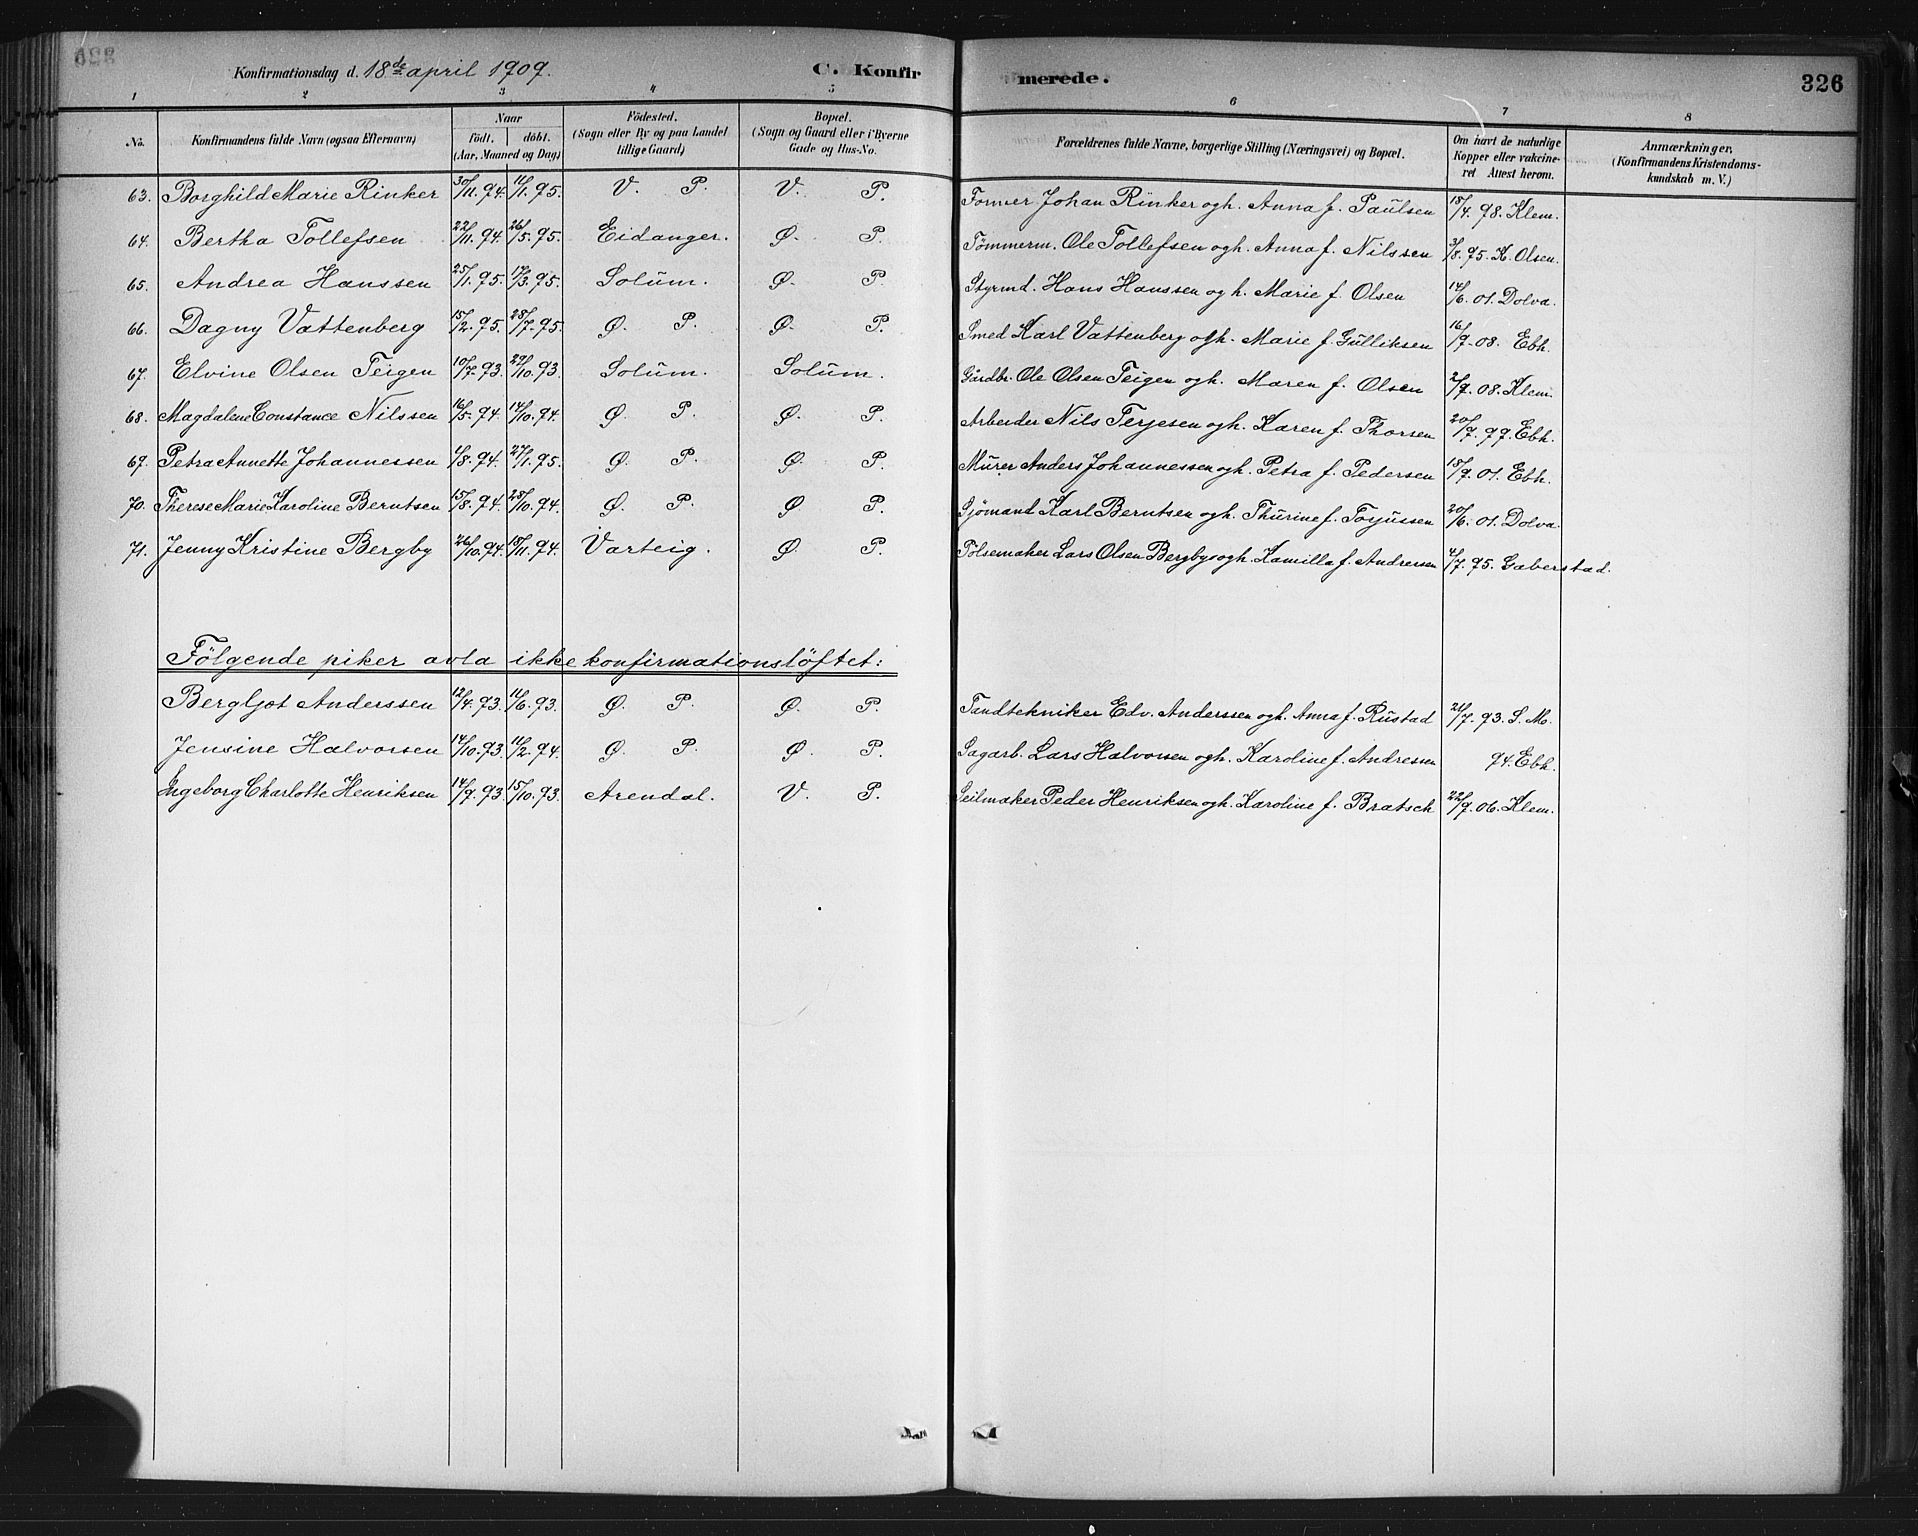 Konfirmationsdag d. 18de april 1909. C. Konfirmerede. 326
1 2 3 4 5 6 7 8
No. Konfirmandens fulde Navn (ogsaa Efternavn) Naar födt. döbt. (Aar, Maaned og Dag) Födested. (Sogn eller By og paa Landet tillige Gaard) Bopæl. (Sogn og Gaard eller i Byerne Gade og Hus-No. Forældrenes fulde Navne, borgerlige Stilling (Næringsvei) og Bopæl. Om havt de naturlige Kopper eller vakcineret Attest herom. Anmærkninger, (Konfirmandens Kristendomskundskab m. V.)
63. Borghild Marie Rinker 30/11.94. 11/1.95. V. P. V. P. Former Johan Rinker ogh. Anna f. Paulsen 18/4. 98. Klem.
64. Bertha Tollefsen 22/11.94. 26/5.95. Eidanger. Ø. P. Tömmerm. Ole Tollefsen ogh. Anna f. Nilssen 3/8. 95. K. Olsen.
65. Andrea Hanssen 25/1.95. 17/3.95. Solum. Ø. P. Styrmd. Hans Hanssen og h. Marie f. Olsen 14/6. 01. Dolva.
66. Dagny Vattenberg 15/2.95. 28/7.95. Ø. P. Ø. P. Smed Karl Vattenberg ogh. Marie f. Gulliksen 16/9. 08. Ebh.
67. Elvine Olsen Teigen 10/7.93. 29/10.93. Solum. Solum. Gårdbr. Ole Olsen Teigen ogh. Maren f. Olsen 2/9. 08. Klem.
68. Magdalene Constance Nilssen 16/5.94. 14/10.94. Ø. P. Ø. P. Arbeider Nils Terjesen ogh. Karen f. Thorsen 20/9. 99. Ebh.
69. Petra Annette Johannessen 1/8.94. 27/1.95. Ø. P. Ø. P. Murer Anders Johannessen ogh. Petra f. Pedersen 18/9. 01. Ebh.
70. Therese Marie Karoline Berntsen 15/8.94. 28/10.94. Ø. P. Ø. P. Sjömand Karl Berntsen ogh. Thurine f. Torjussen 20/6. 01. Dolva.
71. Jenny Kristine Bergby 26/10.94. 18/11.94. Varteig. Ø. P. Pölsemaker Lars Olsen Bergby ogh. Kamilla f. Andresen 4/7. 95. Gaberstad.
Fölgende piker avla ikke konfirmationslöftet:
Bergljot Anderssen 12/4.93. 11/6.93. Ø. P. Ø. P. Tandtekniker Edv. Anderssen ogh. Anna f. Rustad 21/7. 93. S. Mo.
Jensine Halvorsen 14/10.93. 11/2.94. Ø. P. Ø. P. Sagarb. Lars Halvorsen ogh. Karoline f. Andresen 94. Ebh.
Ingeborg Charlotte Henriksen 14/9.93. 15/10.93. Arendal. V. P. Seilmaker Peder Henriksen ogh. Karoline f. Bratsch 22/9. 06. Klem.